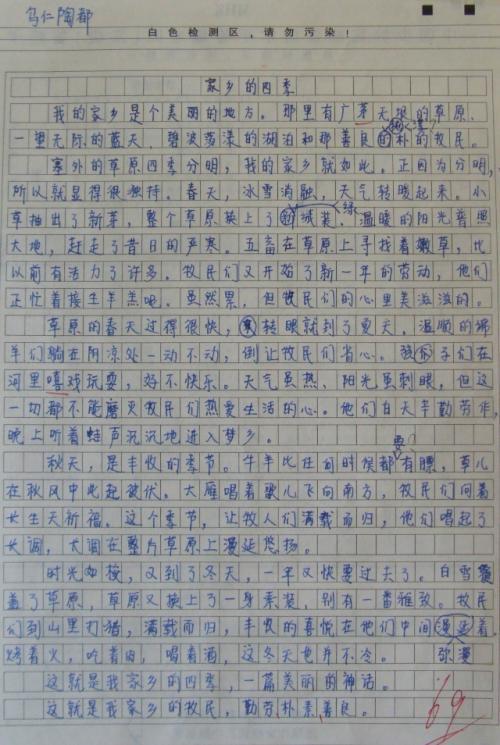 乌仁陶都
白色检测区，请勿污染！
家乡的四季
我的家乡是个美丽的地方。那里有广茅无垠的草原、
一望无际的蓝天、碧波荡漾的湖泊和那善良的朴的牧民。
塞外的草原四季分明，我的家乡就如此。正因为分明，
所以就显得很独特。春天，冰雪消融，天气转暖起来。小
绿
草抽出了新芽，整个草原换上了新绒装，温暖的阳光普照
大地，赶走了昔日的严寒。五畜在草原上寻找着嫩草，比
以前有活力了许多。牧民们又开始了新一年的劳动，他们
正忙着接生羊羔呢。虽然累，但牧民们的心里美滋滋的。
草原的春天过得很快，转眼就到了夏天，温顺的绵
羊们躺在阴凉处一动不动，倒让牧民们省心。孩子们在
河里嘻戏玩耍，好不快乐。天气虽热，阳光虽刺眼，但这
一切都不能磨灭牧民们热爱生活的心。他们白天辛勤劳作，
晚上听着蛙声沉沉地进入梦乡。
秋天，是丰收的季节。牛羊比任何时候都有膘，草儿
在秋风中此起彼伏。大雁唱着歌儿飞向南方，牧民们向着
长生天祈福。这个季节，让牧人们满载而归，他们唱起了
长调，长调在整片草原上漫延悠扬。
时光如梭，又到了冬天，一年又快要过去了。白雪覆
盖了草原，草原又换上了一身素装，别有一番雅致。牧民
们到山里打猎，满载而归，丰收的喜悦在他们中间漫延着。
弥漫
烤着火，吃着肉，喝着酒，这冬天也并不冷。
这就是我家乡的四季，一篇美丽的神话。
这就是我家乡的牧民，勤劳、朴素、善良。
69